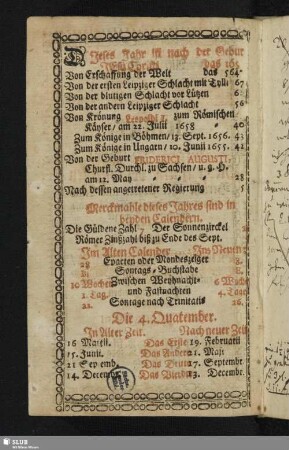 Dieses Jahr ist nach der Gebur
JEsu Christi das 169
Von Erschaffung der Welt das 564
Von der ersten Leipziger Schlacht mit Tylli 67
Von der blutigen Schlacht vor Lützen 6
Von der andern Leipziger Schlacht 56
Von Krönung Leopoldi I. zum Römischen
Käyser / am 22. Julii 1658 40
Zum Könige in Böhmen / 13. Sept. 1656. 43
Zum Könige in Ungarn / 10. Junii 1655. 42
Von der Geburt FRIDERICI AUGUSTI,
Churfl. Durchl. zu Sachsen / u. g. H.
am 12. May 28
Nach dessen angetretener Regierung 5
Merckmahle dieses Jahres sind in
beyden Calendern.
Die Güldene Zahl 7 Der Sonnenzirckel
Römer Zinßzahl biß zu Ende des Sept.
Im Alten Calender Im Neuen
28 Epacten oder Mondeszeiger
B Sontags-Buchstabe E
10 Wochen Zwischen Weyhnacht- 6 Woch
2. Tag und Fastnachten 4. Tag
22 Sontage nach Trinitatis 26.
Die 4. Quatember.
In Alter Zeit. Nach neuer Zeit
16 Martii. Das Erste 19. Februarii
15. Junii. Das Andere 21. Maji
21 Septemb. Das Dritte 17. Septembr.
14. Decembr. Das Vierdte 3. Decembr.
SLUB